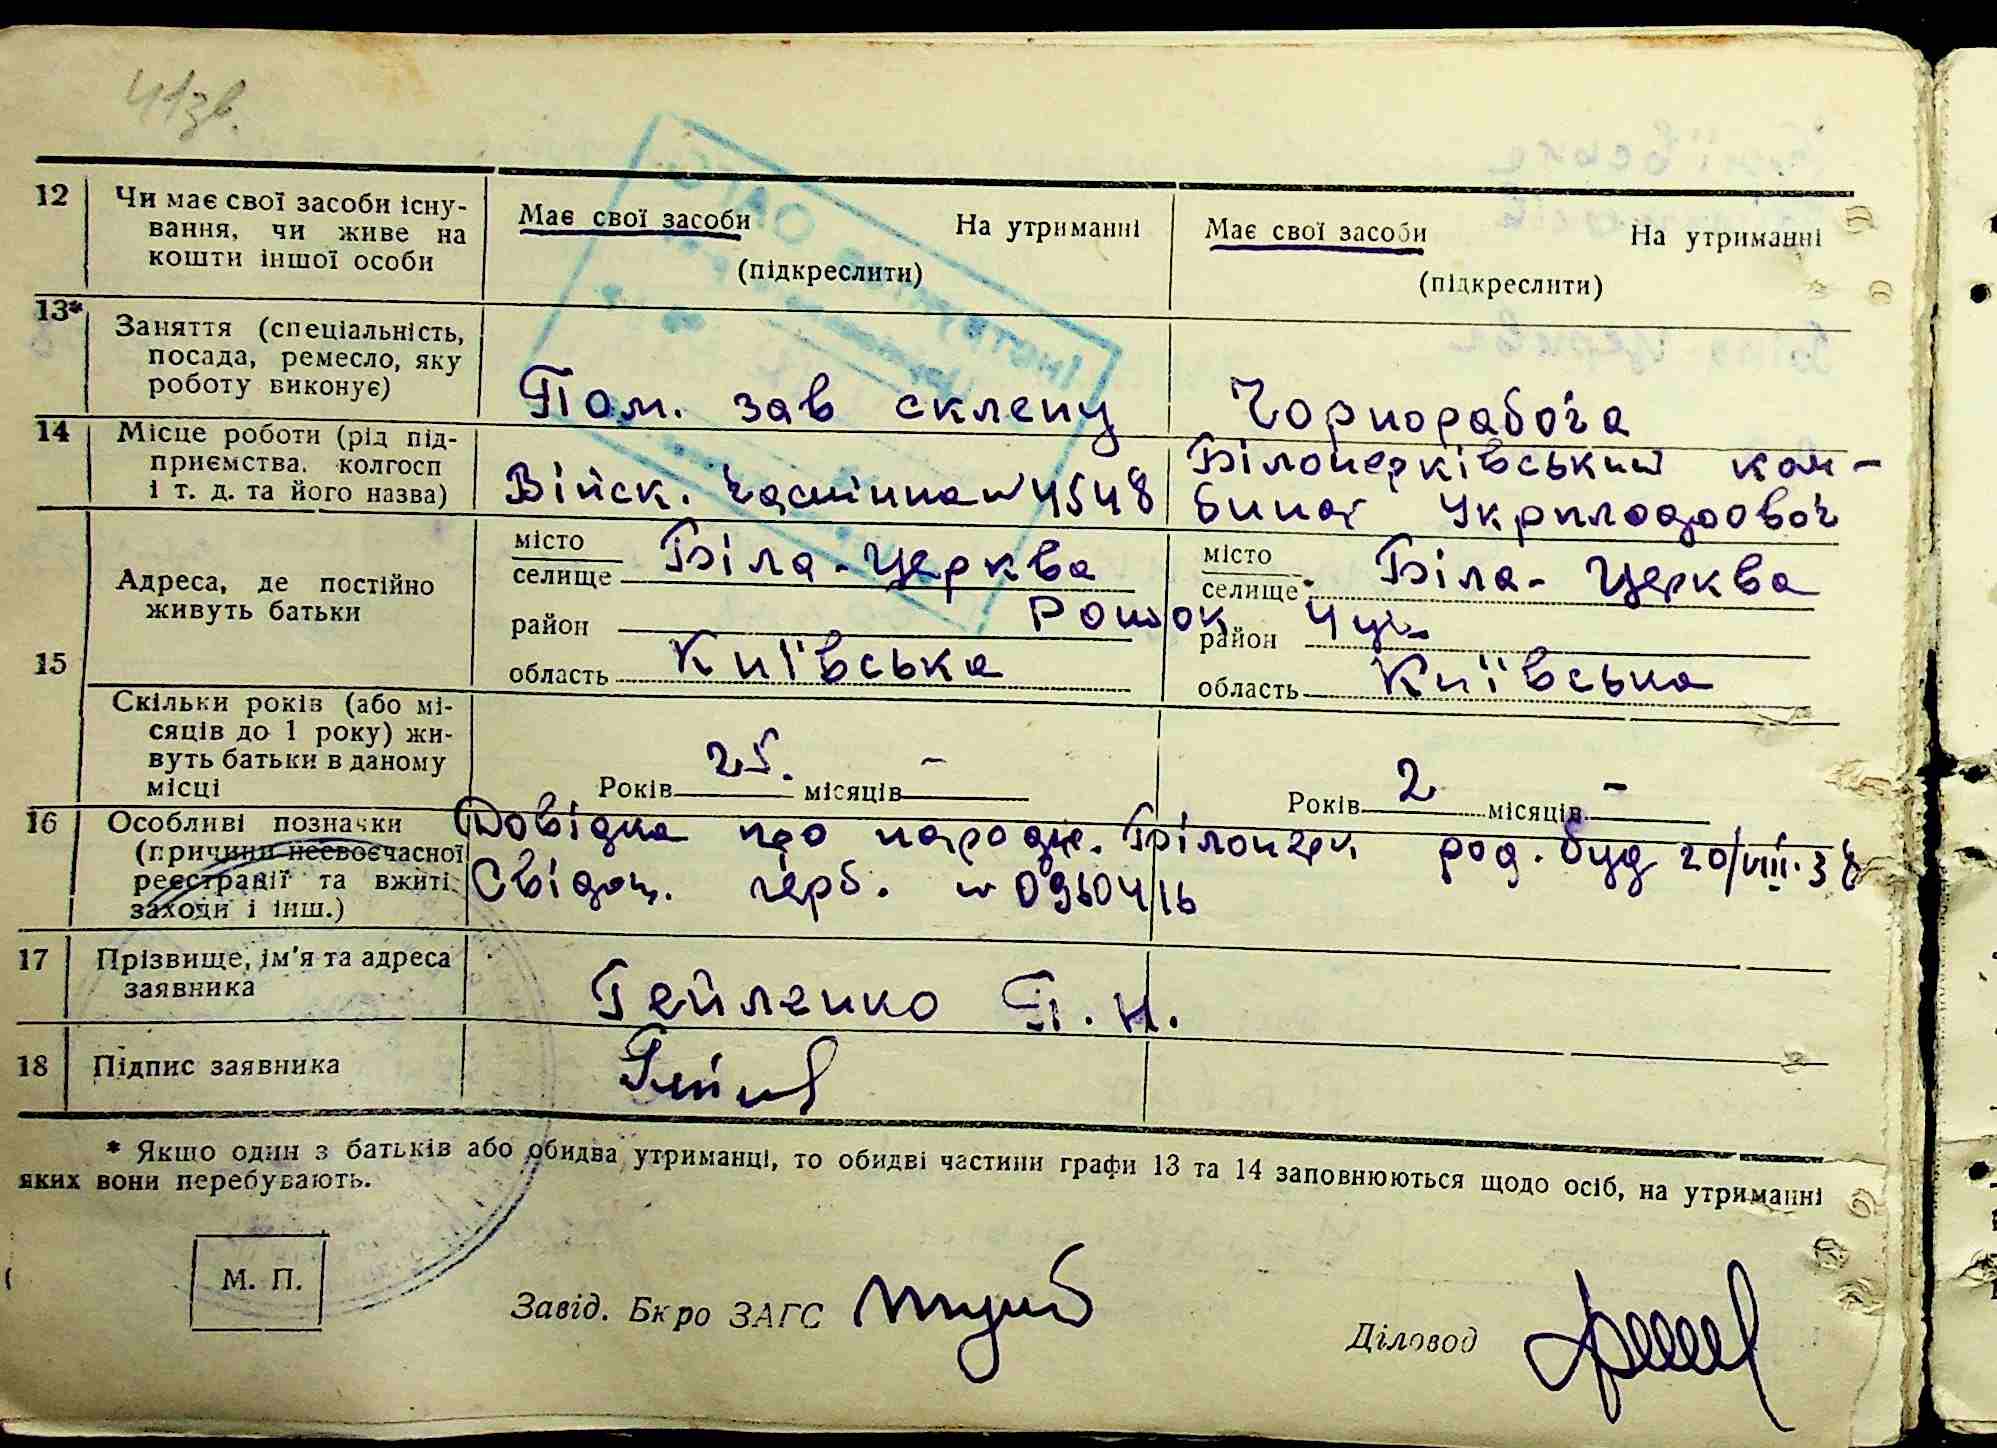 41зв.
12 Чи має свої засоби існу-
вання, чи живе на
кошти іншої особи
Має свої засоби На утриманні
(підкреслити)
Має свої засоби На утриманні
(підкреслити)
13*
Заняття (спеціальність,
посада, ремесло, яку
роботу виконує)
Пом. зав склепу
Чорноробоча
14 Місце роботи (рід під-
приємства, колгосп
і т. д. та його назва)
Війск. Частина № 4548
Білоцерківський ком-
бинат Укрплодоовоч
15
Адреса, де постійно
живуть батьки
місто
селище Біла-Церква
район
область Київська
Роток
місто
селище Біла-Церква
район
область Київська
Скільки років (або мі-
сяців до 1 року) жи-
вуть батьки в даному
місці
Років 25. місяців –
Років 2 місяців –
16 Особливі позначки
(причини несвоєчасної
реєстрації та вжиті
заходи і інш.)
Довідка про народж. Білоцерк род. буд 20/VIII.38
Свідоц. герб. №
17 Прізвище, ім'я та адреса
заявника
Гейленко П. Н.
18 Підпис заявника
* Якщо один з батьків або обидва утриманці, то обидві частини графи 13 та 14 заповнюються щодо осіб, на утриманні
яких вони перебувають.
М. П.
Завід. Бюро ЗАГС
Діловод